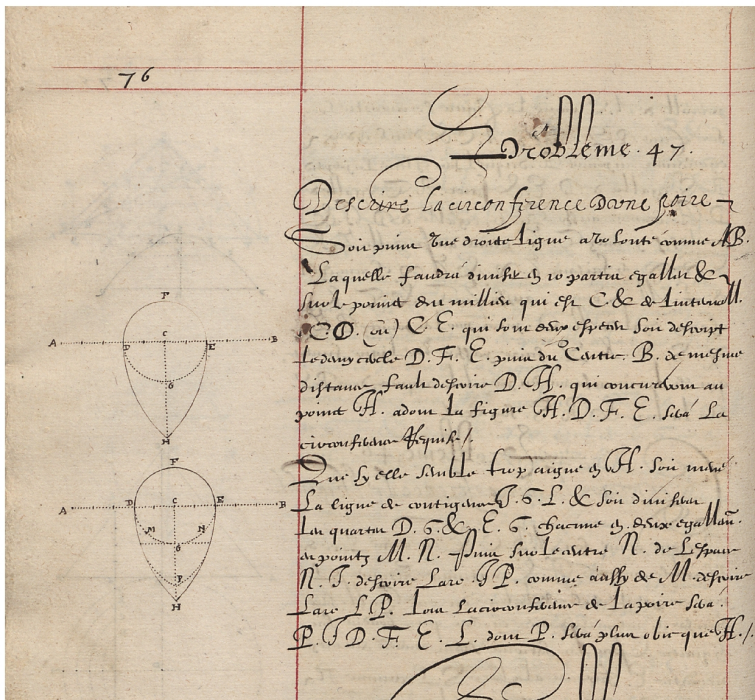 76
Probleme . 47 .
Descrire la circonference dune poire
Soit prinse une droite ligne a volonte comme AB.
Laquelle faudra diviser en 10 parties egalles &
sur le poinct du millieu qui est C & de lintervall.
CD. (ou) C E. qui soit deux espaces soit descript
le demy cercle D. F. E. puis du Centre. B. de mesme
distance fault descrire D. H. qui concurreront au
poinct H. adont la figure H. D. F. E. sera La
circonference Requise /.
Que sy elle semble trop aigue en H. soit menee
La ligne de contigence J. G. L. & soit divisees
Les quartes D. G. & E. G. chacune en deux egallem.
es points M. N. Puis sur le centre N. de Lespace
N. J. descrire Larc J P. comme aussy de M. descrire
Larc L P. Lors La circonference de La poire sera
P. J D. F. E. L. dont P. sera plus obic que H. /.
F
C
A D E B
G
H
F
A D C E B
M N
G
P
H